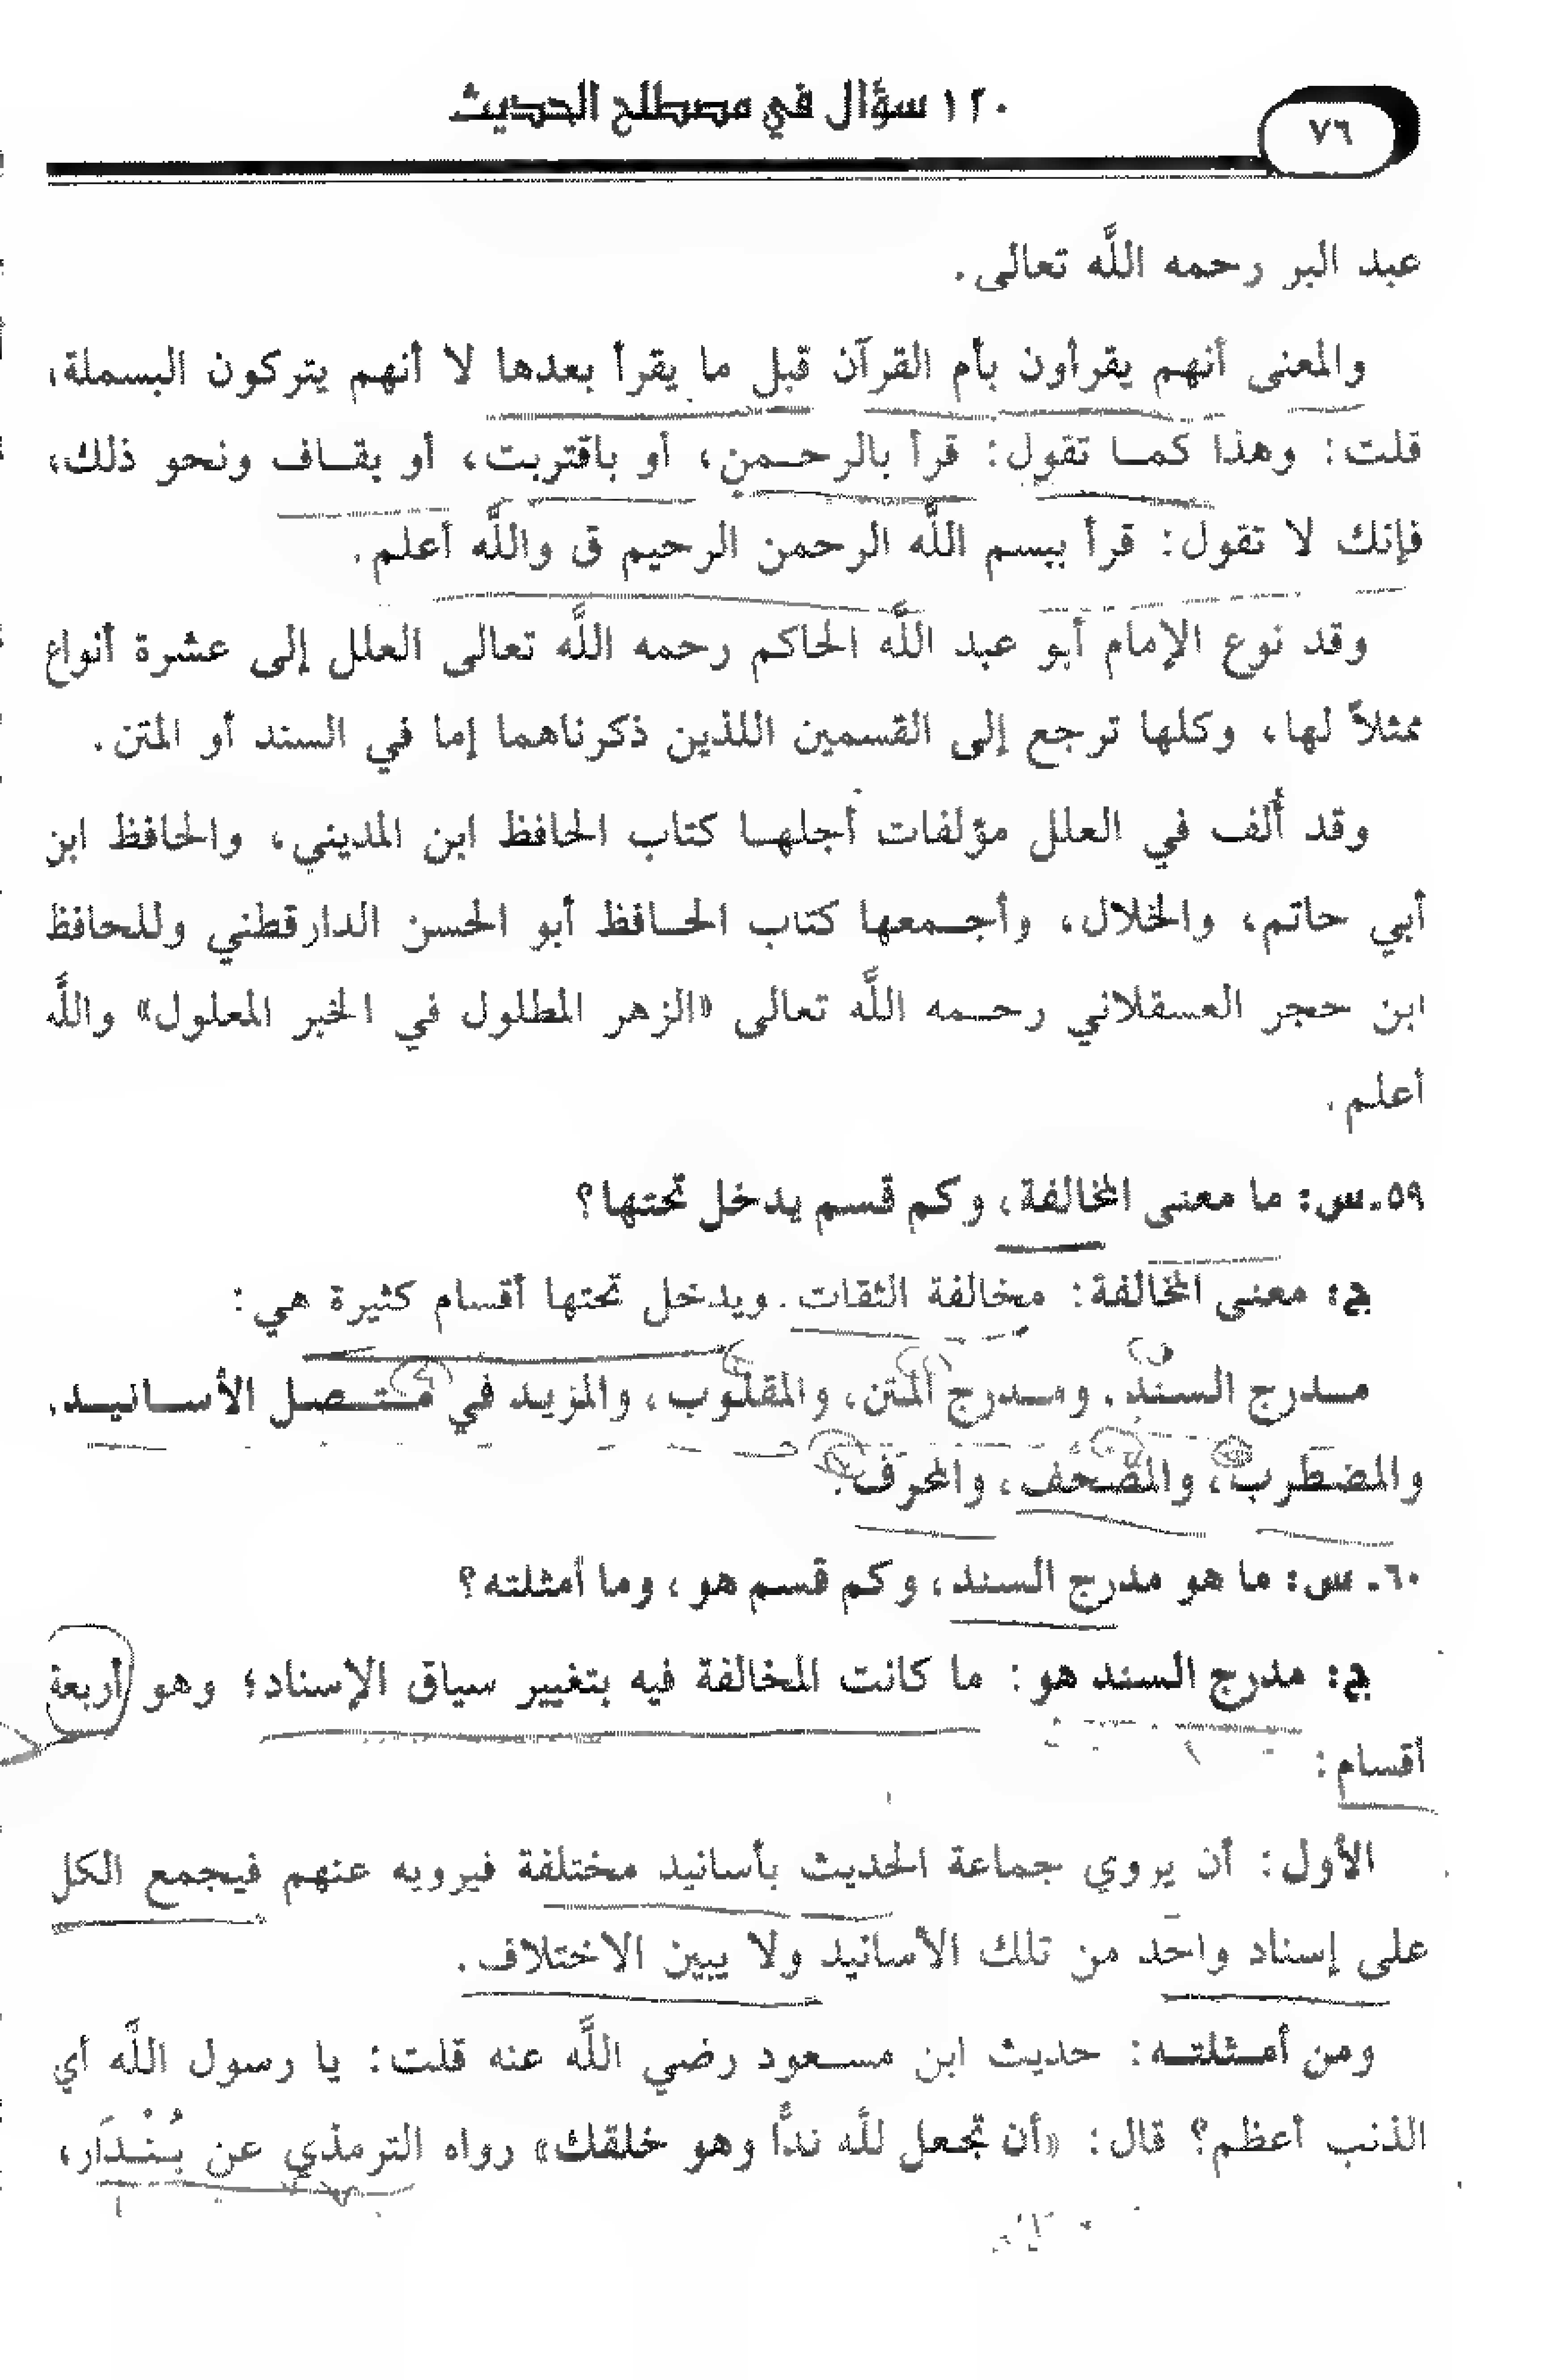 ١٢٠ سؤال في مصطلح الحديث
٧٦
عبد البر رحمه اللَّه تعالى.
والمعنى أنهم يقرأون بأم القرآن قبل ما يقرأ بعدها لا أنهم يتركون البسملة،
قلت: وهذا كمـا تقول: قرأ بالرحـمن، أو باقتربت، أو بقـاف ونحو ذلك،
فإنك لا تقول: قرأ ببسم اللَّه الرحمن الرحيم ق واللَّه أعلم.
وقد نوع الإمام أبو عبد اللَّه الحاكم رحمه اللَّه تعالى العلل إلى عشرة أنواع
ممثلاً لها، وكلها ترجع إلى القسمين اللذين ذكرناهما إما في السند أو المتن.
وقد أُلف في العلل مؤلفات أجلهـا كتاب الحافظ ابن المديني، والحافظ ابن
أبي حاتم، والخلال، وأجـمعها كتاب الحـافظ أبو الحسن الدارقطني وللحافظ
ابن حجر العسقلاني رحـمه اللَّه تعالى «الزهر المطلول في الخبر المعلول» واللَّه
أعلم.
٥٩ـ س: ما معنى المخالفة، وكم قسم يدخل تحتها؟
ج: معنى المخالفة: مخالفة الثقات. ويدخل تحتها أقسام كثيرة هي:
مـدرج السند. ومـدرج المتن، والمقلوب، والمزيـد في مـتـصـل الأسـانيـد.
والمضطرب، والمصحف، والمحرف.
٦٠ـ س: ما هو مدرج السند، وكم قسم هو، وما أمثلته؟
ج: مدرج السند هو: ما كانت المخالفة فيه بتغيير سياق الإسناد؛ وهو أربعة
أقسام:
الأول: أن يروي جماعة الحديث بأسانيد مختلفة فيرويه عنهم فيجمع الكل
على إسناد واحد من تلك الأسانيد ولا يبين الاختلاف.
ومن أمـثلتـه: حديث ابن مسـعود رضي اللَّه عنه قلت: يا رسول اللَّه أي
الذنب أعظم؟ قال: «أن تجعل للَّه ندًّا وهو خلقك» رواه الترمذي عن بُـنْـدَار،